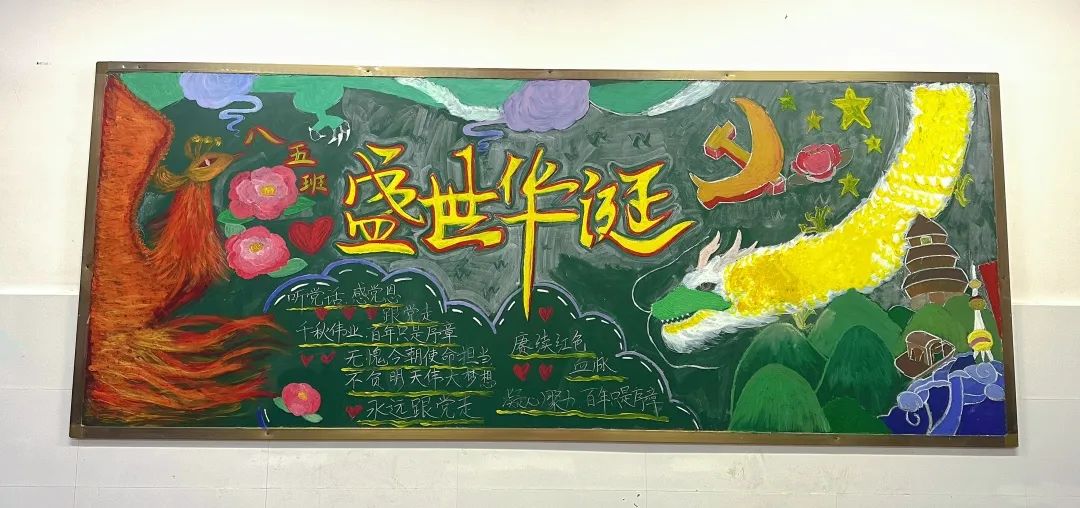 八五班
盛世华诞
听党话.感党恩
跟党走
千秋伟业.百年只是序章
无愧今朝使命担当
不负明天伟大梦想
永远跟党走
赓续红色
血脉
凝心聚力 百年只是序章